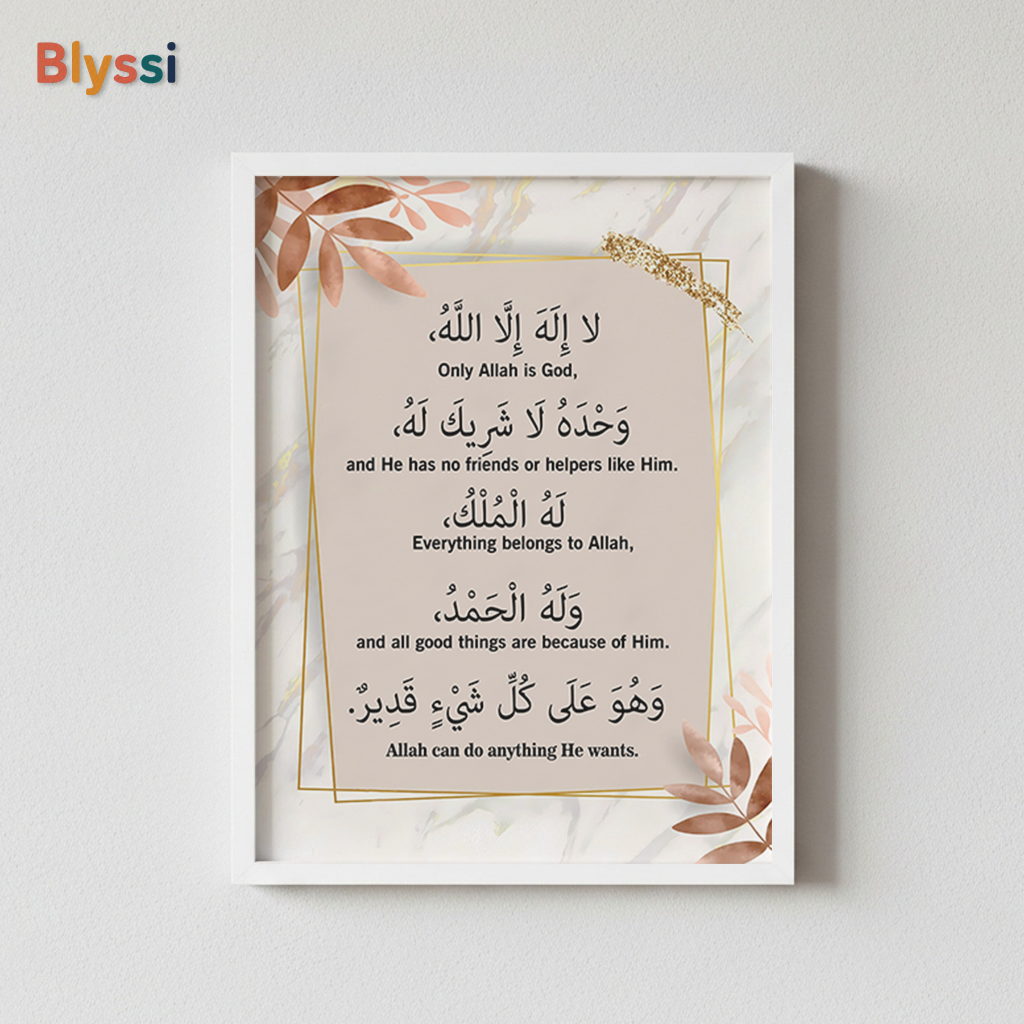 Blyssi
لا إِلَهَ إِلَّا اللَّهُ،
Only Allah is God,
وَحْدَهُ لَا شَرِيكَ لَهُ،
and He has no friends or helpers like Him.
لَهُ الْمُلْكُ،
Everything belongs to Allah,
وَلَهُ الْحَمْدُ،
and all good things are because of Him.
وَهُوَ عَلَى كُلِّ شَيْءٍ قَدِيرٌ.
Allah can do anything He wants.